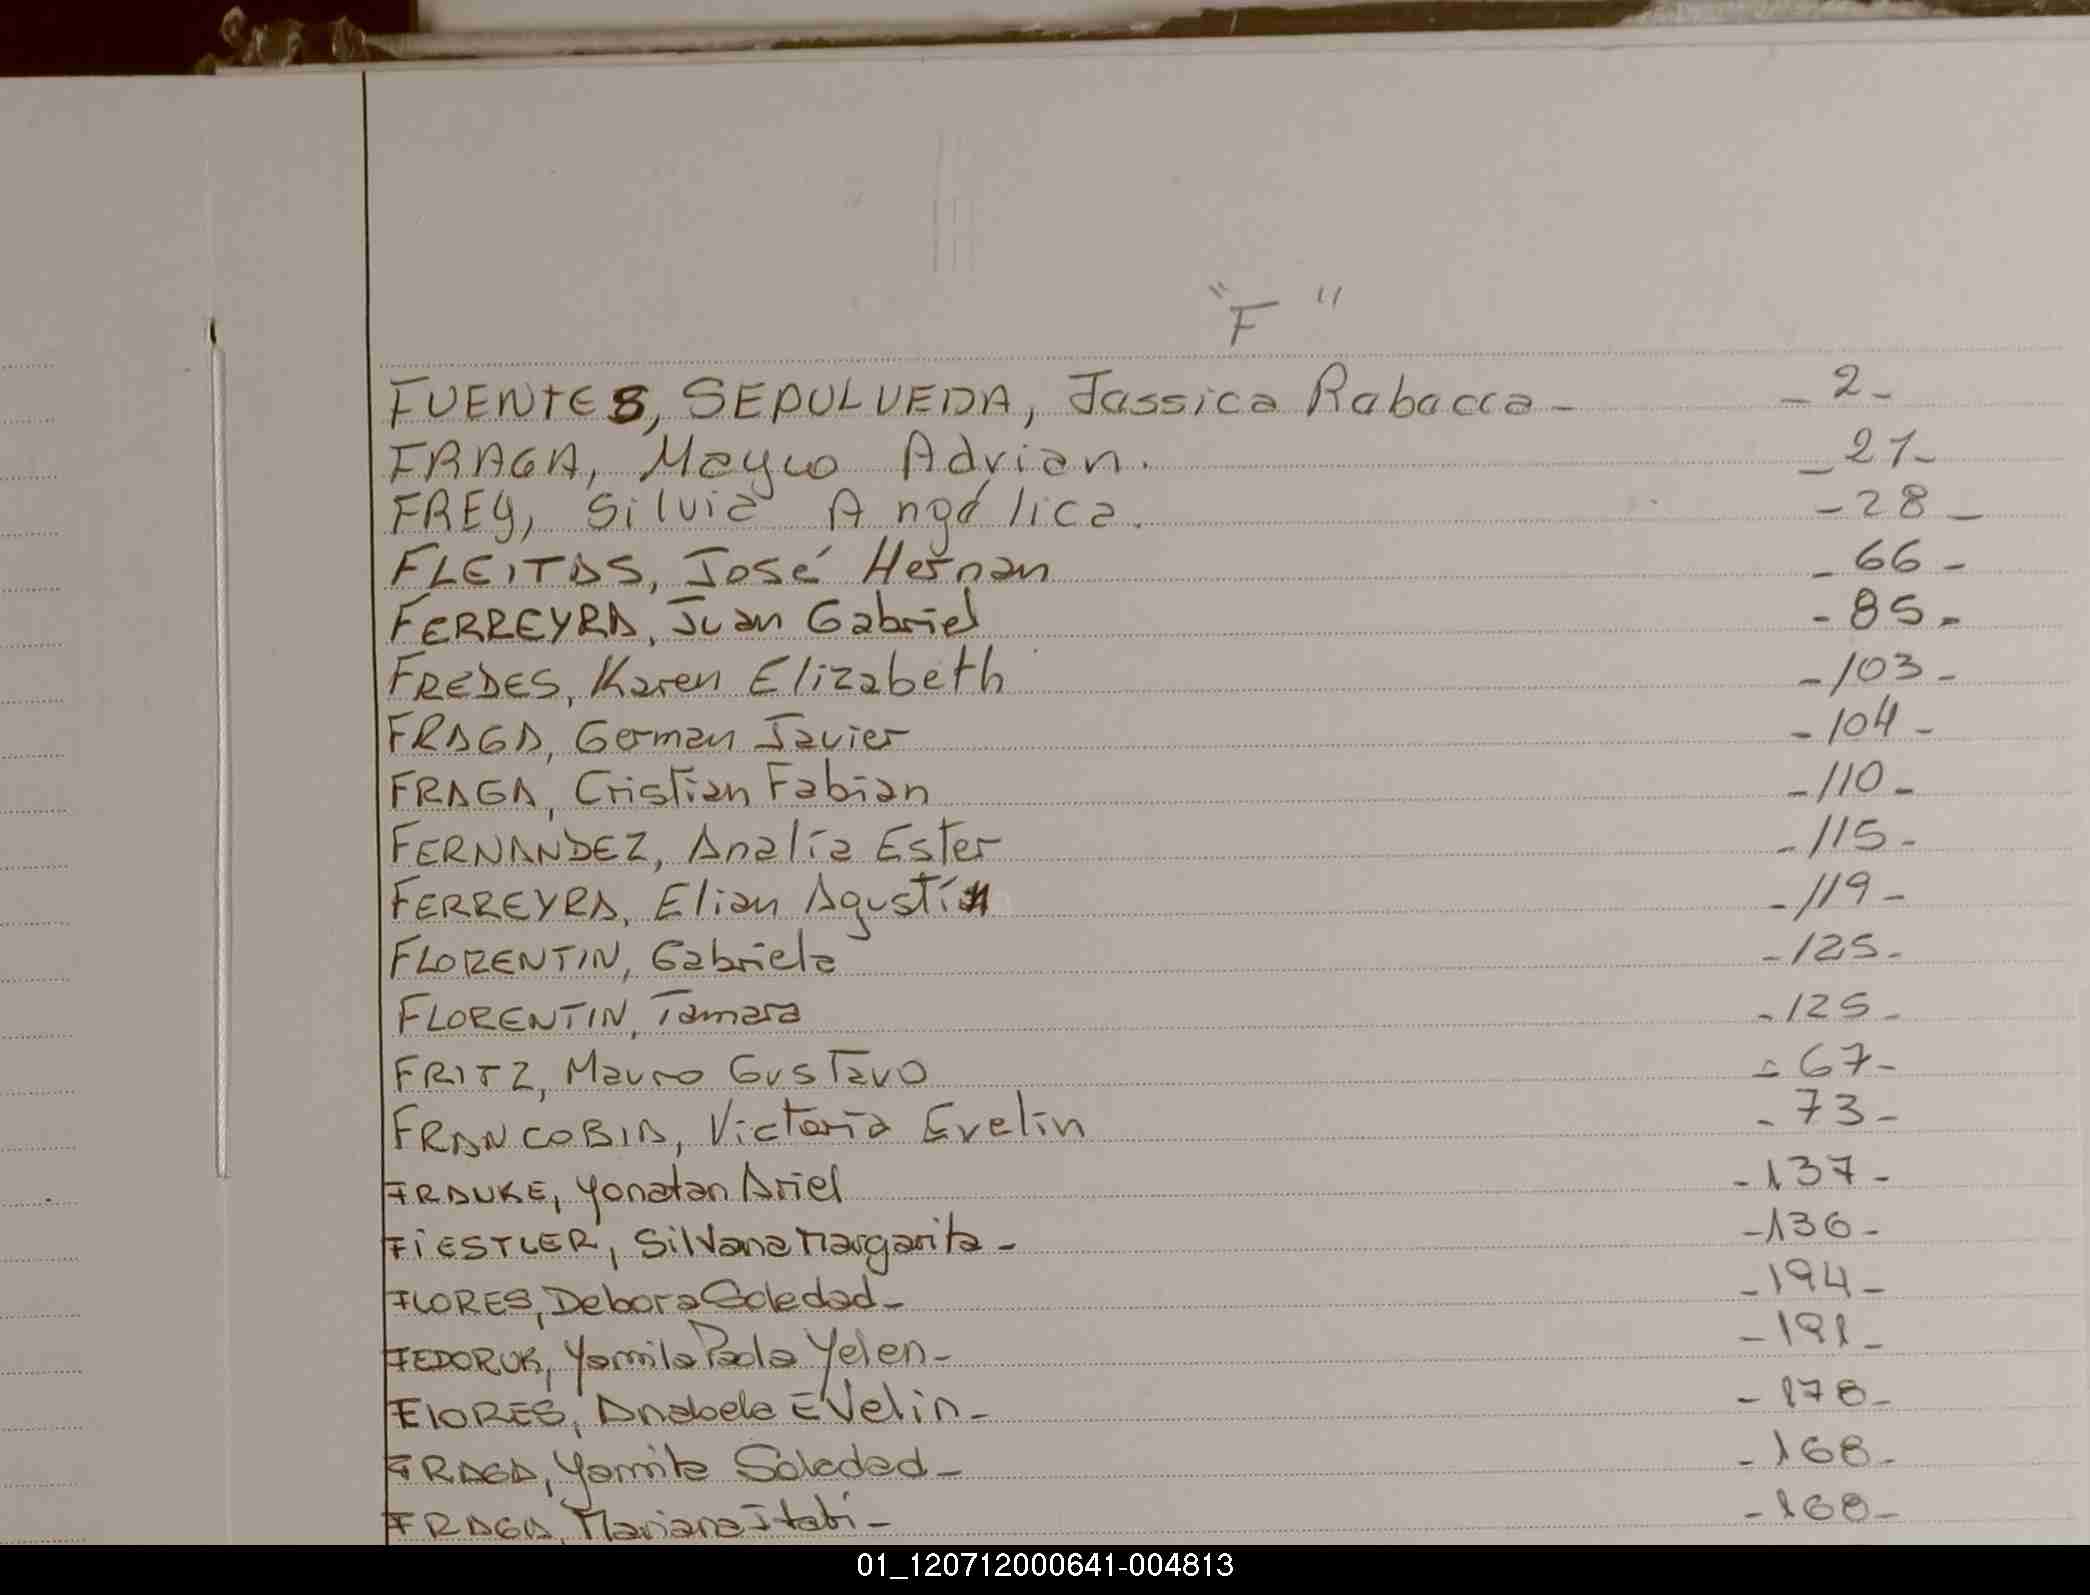 "F"
FUENTES, SEPULVEDA, Jassica Rabacca - - 2 -
FRAGA, Mayco Adrian. - 21 -
FREY, Silvia Angélica. - 28 -
FLEITAS, José Hernan - 66 -
FERREYRA, Juan Gabriel - 85 -
FREDES, Karen Elizabeth - 103 -
FRAGA, German Javier - 104 -
FRAGA, Cristian Fabian - 110 -
FERNANDEZ, Analía Ester - 115 -
FERREYRA, Elian Agustín - 119 -
FLORENTIN, Gabriela - 125 -
FLORENTIN, Tamara - 125 -
FRITZ, Mauro Gustavo - 67 -
FRANCOBIA, Victoria Evelin - 73 -
FRAUKE, Yonatan Ariel - 137 -
FiESTLER, Silvana Margarita - - 136 -
FLORES, Debora Soledad - - 194 -
FEDORUK, Yamila Paola Yelen - - 191 -
FlORES, Anabela EVelin - - 178 -
FRAGA, Yamila Soledad - - 168 -
FRAGA, Mariana Itatí - - 168 -
01_120712000641-004813